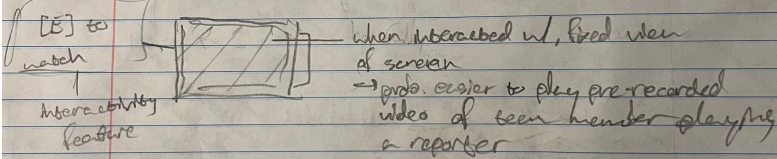 [E] to
watch
Interactivity
feature
when interacted w/, fixed view
of screen
→ prob. easier to play pre-recorded
video of team member playing
a reporter